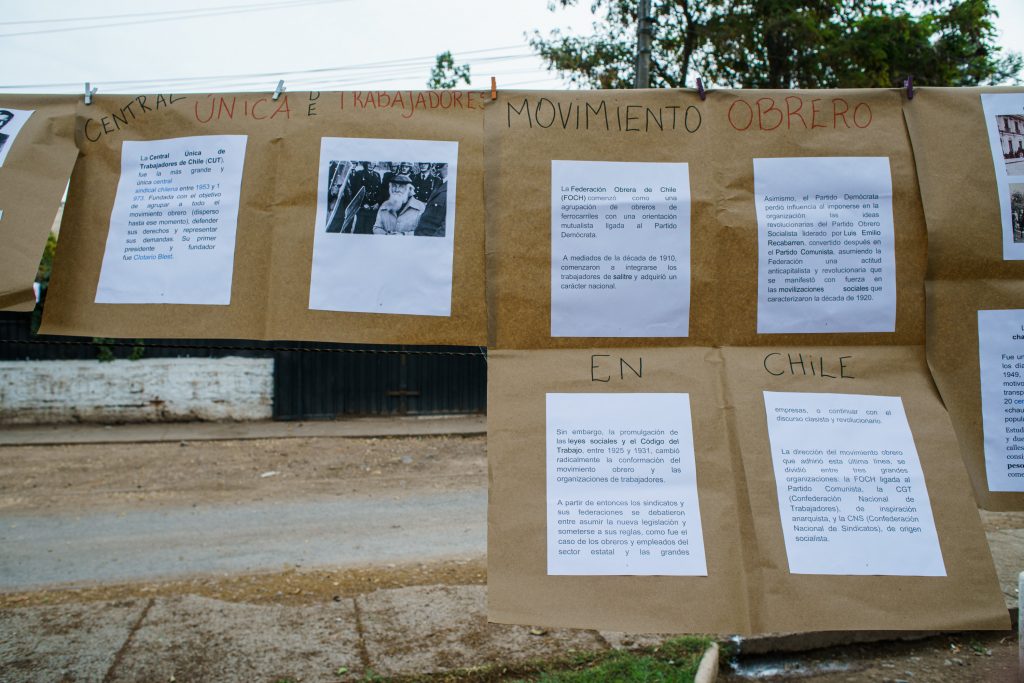 CENTRAL ÚNICA DE TRABAJADORES
La Central Única de
Trabajadores de Chile (CUT),
fue la más grande y
única central
sindical chilena entre 1953 y 1
973. Fundada con el objetivo
de agrupar a todo el
movimiento obrero (disperso
hasta ese momento), defender
sus derechos y representar
sus demandas. Su primer
presidente y fundador
fue Clotario Blest.
MOVIMIENTO OBRERO
La Federación Obrera de Chile
(FOCH) comenzó como una
agrupación de obreros de
ferrocarriles con una orientación
mutualista ligada al Partido
Demócrata.
A mediados de la década de 1910,
comenzaron a integrarse los
trabajadores de salitre y adquirió un
carácter nacional.
Asimismo, el Partido Demócrata
perdió influencia al imponerse en la
organización las ideas
revolucionarias del Partido Obrero
Socialista liderado por Luis Emilio
Recabarren, convertido después en
el Partido Comunista, asumiendo la
Federación una actitud
anticapitalista y revolucionaria que
se manifestó con fuerza en
las movilizaciones sociales que
caracterizaron la década de 1920.
EN CHILE
Sin embargo, la promulgación de
las leyes sociales y el Código del
Trabajo, entre 1925 y 1931, cambió
radicalmente la conformación del
movimiento obrero y las
organizaciones de trabajadores.
A partir de entonces los sindicatos y
sus federaciones se debatieron
entre asumir la nueva legislación y
someterse a sus reglas, como fue el
caso de los obreros y empleados del
sector estatal y las grandes
empresas, o continuar con el
discurso clasista y revolucionario.
La dirección del movimiento obrero
que adhirió esta última línea, se
dividió entre tres grandes
organizaciones: la FOCH ligada al
Partido Comunista, la CGT
(Confederación Nacional de
Trabajadores), de inspiración
anarquista, y la CNS (Confederación
Nacional de Sindicatos), de origen
socialista.
Fue u
los día
1949,
motivo
transp
20 cen
«chau
popul
Estud
y du
calles
consi
peso
come